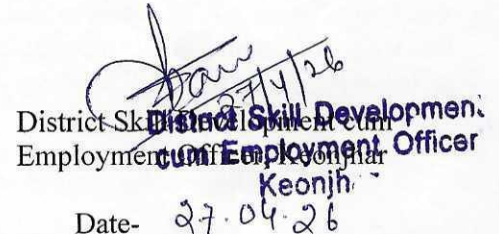 27/4/26
District Skill Development cum
Employment Officer, Keonjhar
District Skill Development
cum Employment Officer
Keonjh
Date- 27.04.26